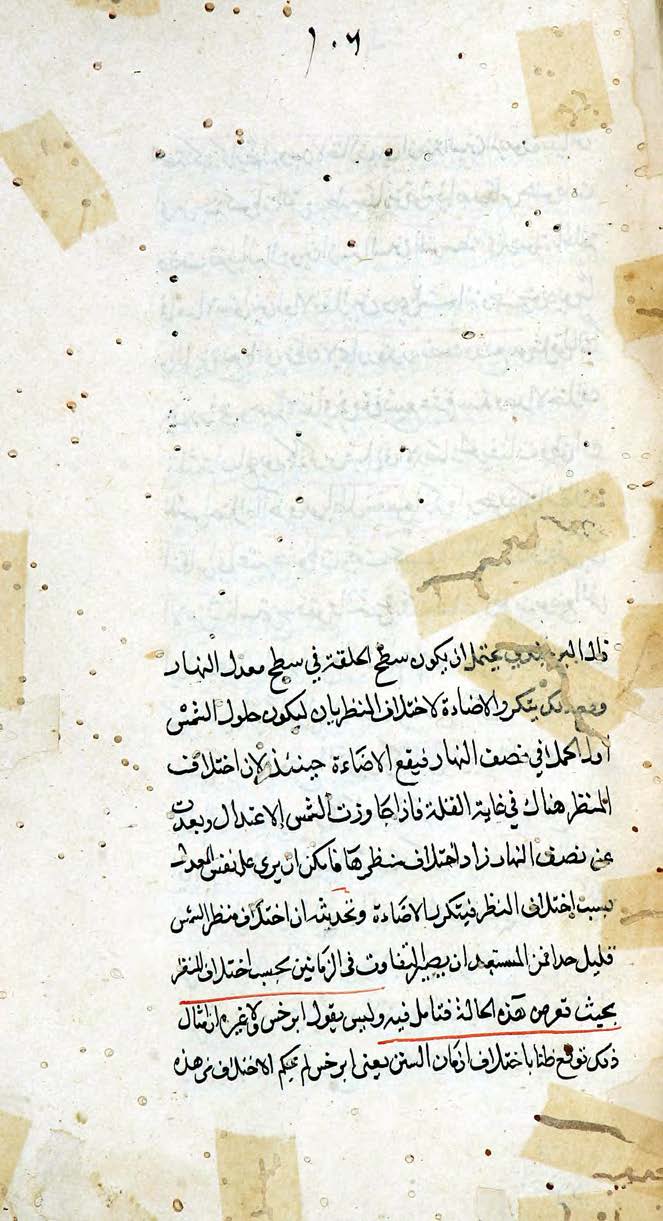 ١٠٦
قال البرجندي يحتمل ان يكون سطح الحلقة في سطح معدل النهار
ومع ذلك يتكرر الاضاءة لاختلاف المنظر بان ليكون حلول الشمس
اول الحمل في نصف النهار فيقع الاضاءة حينئذ لان اختلاف
المنظر هناك في غاية القلة فاذا جاوزت الشمس الاعتدال وبعدت
عن نصف النهار زاد اختلاف منظرها فامكن ان يرى على نفس المعدل
بسبب اختلاف المنظر فيتكرر الاضاءة وتحدثه ان اختلاف منظر الشمس
قليل جدا فمن المستبعد ان يصير التفاوت في الزمانين بحسب اختلاف المنظر
بحيث تعرض هذه الحالة فتامل فيه وليس يقول ابرخس ولا غيره ان امثال
ذلك توقع ظنا باختلاف ازمان السنن يعني ابرخس لم يحكم الاختلاف من هذه